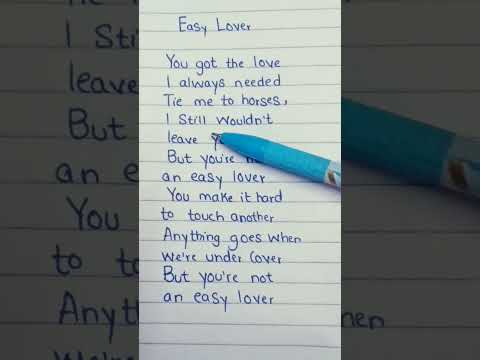 Easy Lover
You got the love
I always needed
Tie me to horses,
I still wouldn't
leave
But you're
an easy lover
You make it hard
to touch another
Anything goes when
We're under cover
But you're not
an easy lover